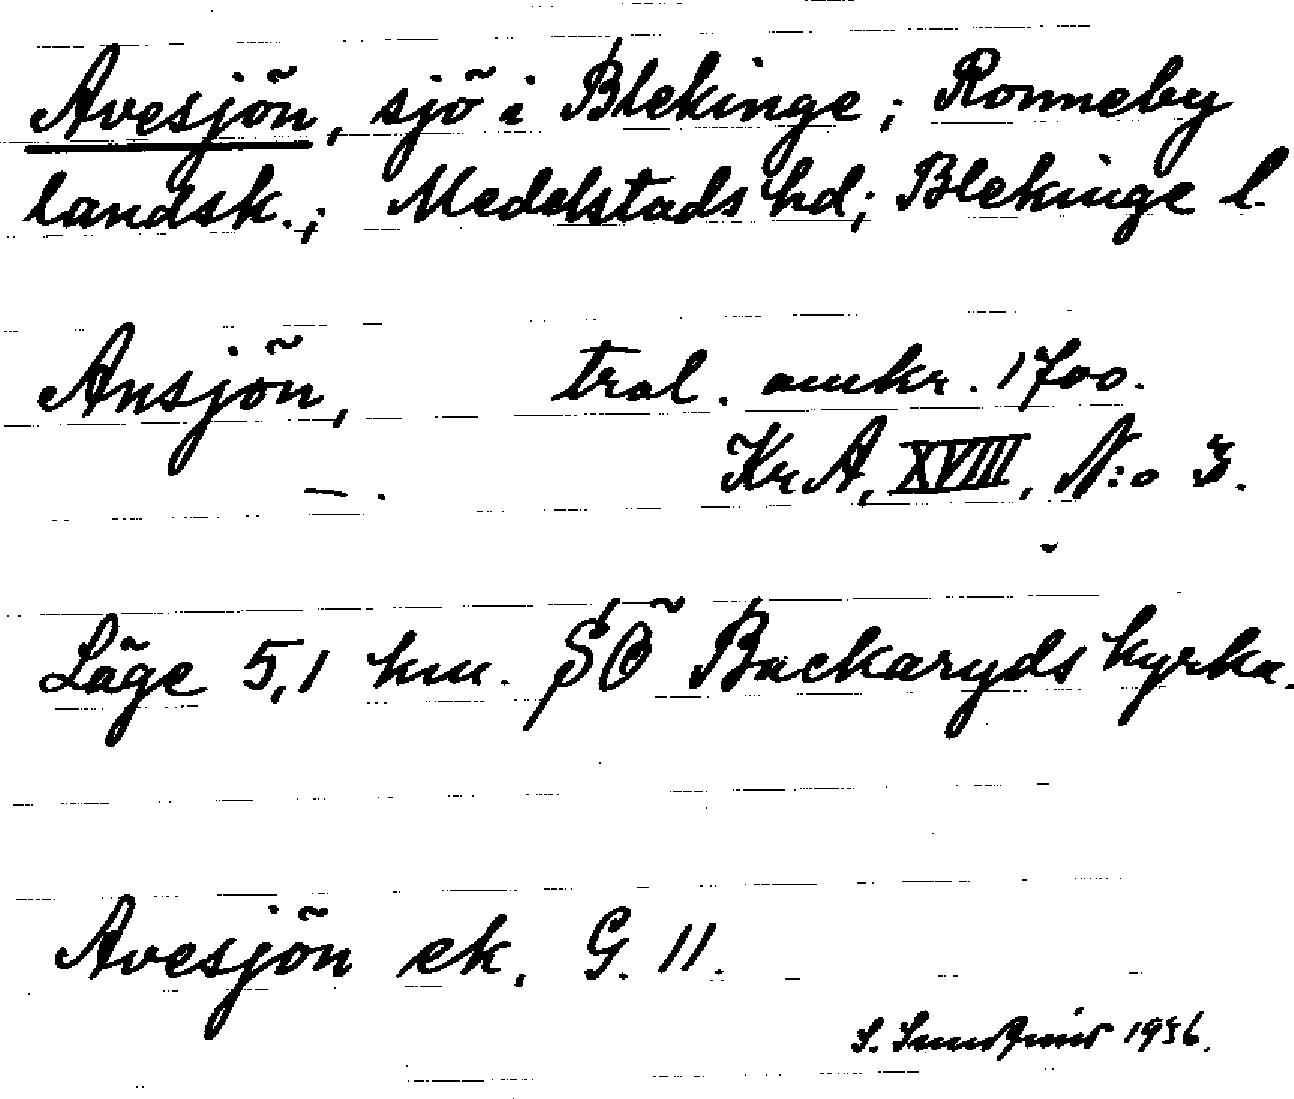 Avesjön, sjö i Blekinge; Ronneby
landsk.; Medelstads hd; Blekinge l.
Ansjön, tral. omkr. 1700.
KrA, XVIII, N:o 3.
—.
Läge 5,1 km. SÖ Backaryds kyrka.
Avesjön ek. G. 11.
S. 1936.